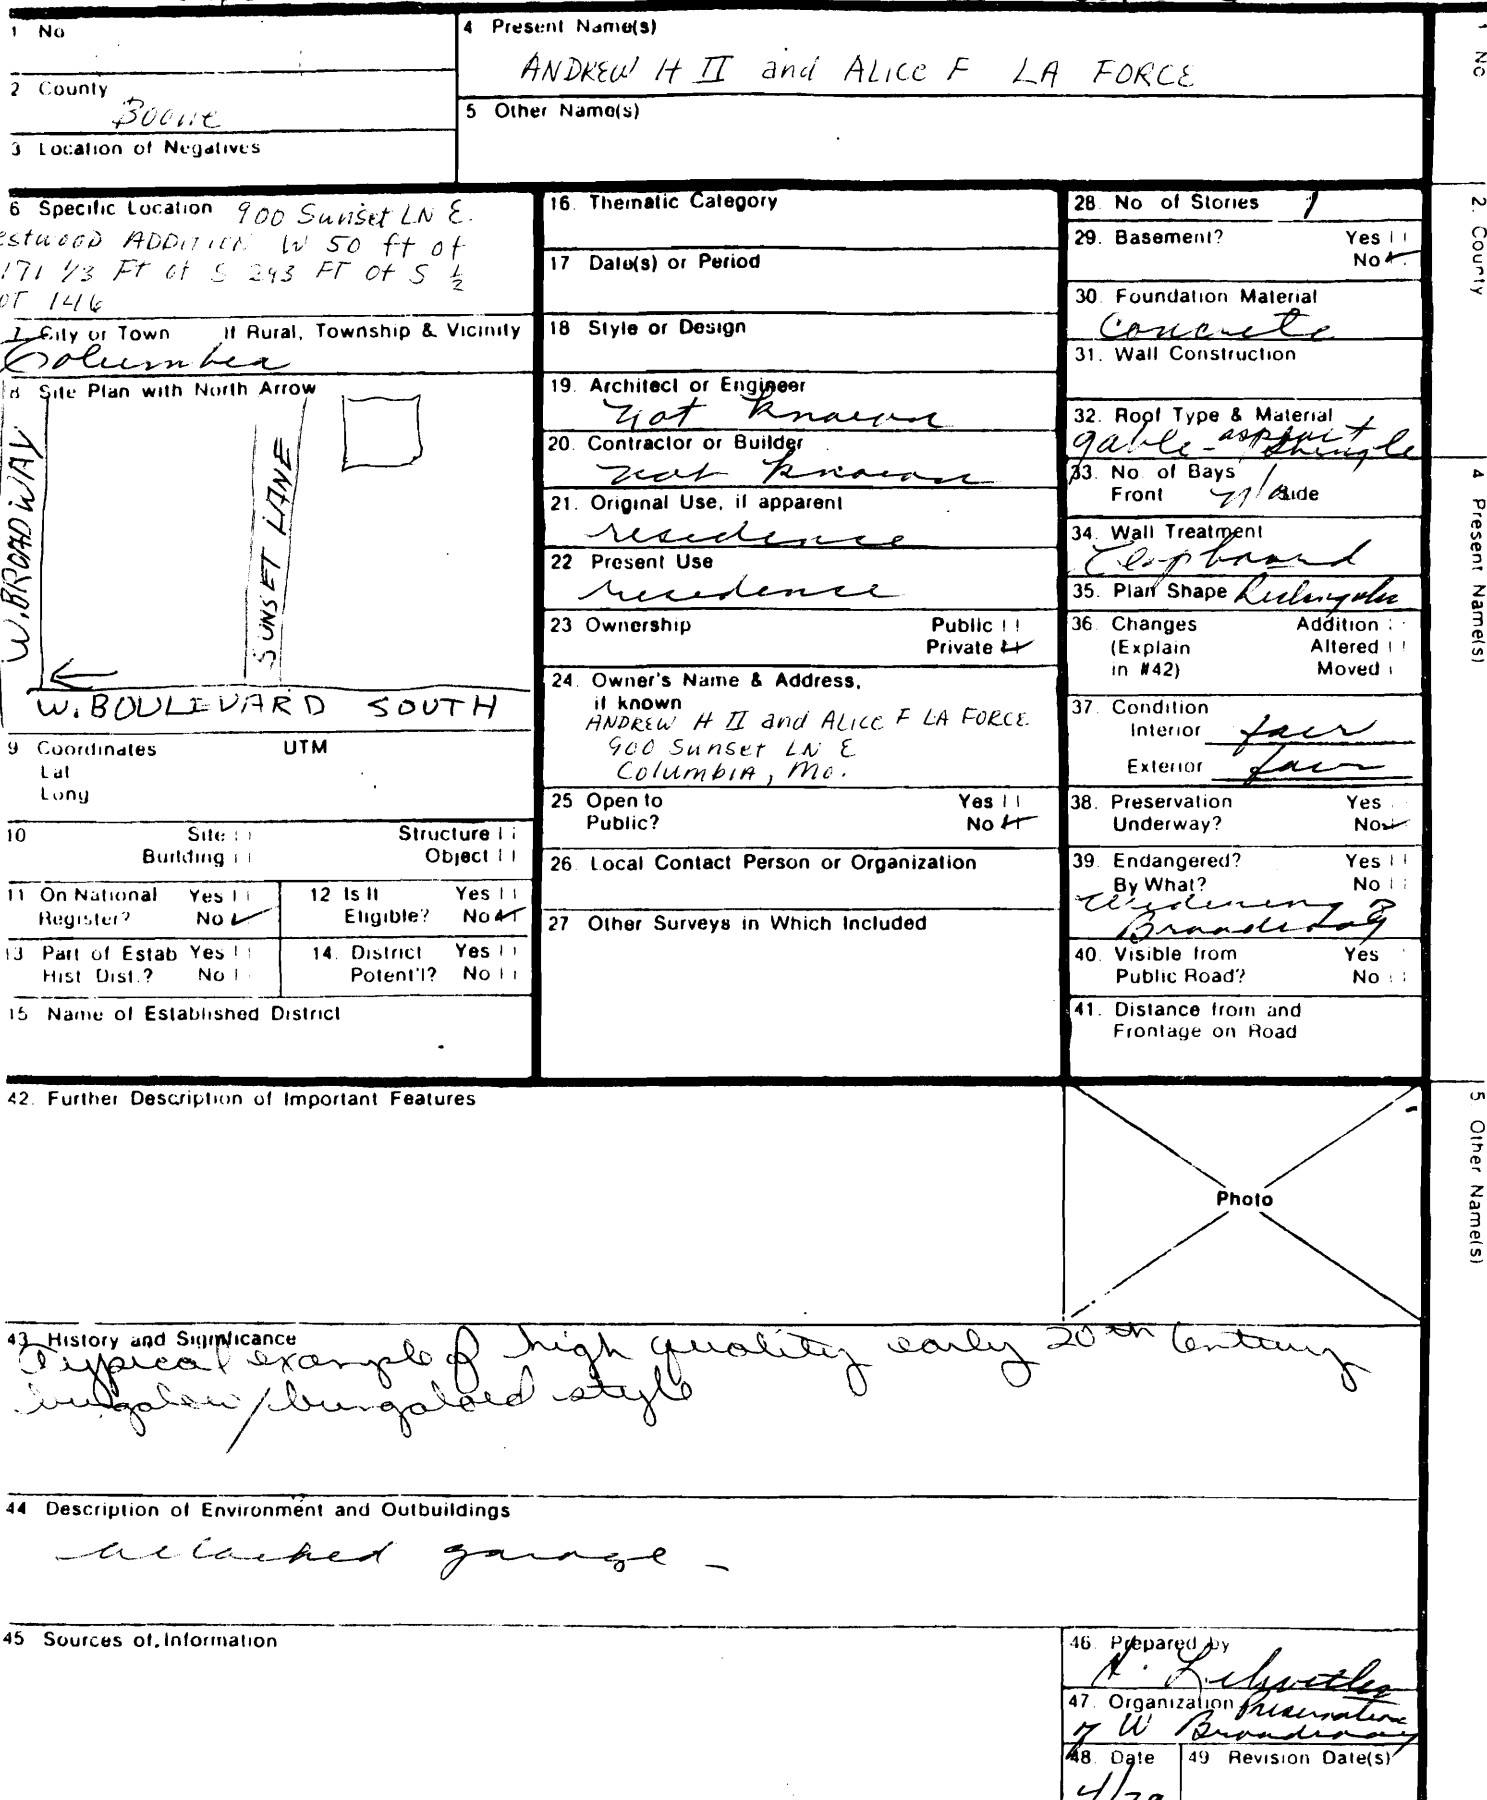 1 No
4 Present Name(s)
ANDREW H II and ALICE F LA FORCE
2 County
Boone
5 Other Name(s)
3 Location of Negatives
6 Specific Location 900 Sunset LN E.
estwood ADDITION W 50 ft of
171 1/3 FT of S 293 FT of S 1/2
OT 146
7 City or Town If Rural, Township & Vicinity
Columbia
8 Site Plan with North Arrow
W. BROADWAY
SUNSET LANE
W. BOULEVARD SOUTH
9 Coordinates UTM
Lat
Long
10 Site Structure
Building Object
11 On National Yes
Register? No
12 Is It Yes
Eligible? No
13 Part of Estab Yes
Hist Dist.? No
14. District Yes
Potent'l? No
15 Name of Established District
16. Thematic Category
17 Date(s) or Period
18 Style or Design
19. Architect or Engineer
not known
20. Contractor or Builder
not known
21. Original Use, if apparent
residence
22 Present Use
residence
23 Ownership Public
Private
24. Owner's Name & Address,
if known
ANDREW H II and ALICE F LA FORCE
900 Sunset LN E
Columbia, Mo.
25 Open to Yes
Public? No
26. Local Contact Person or Organization
27 Other Surveys in Which Included
28. No of Stories 1
29. Basement? Yes
No
30. Foundation Material
Concrete
31. Wall Construction
32. Roof Type & Material
gable - asphalt shingle
33. No. of Bays
Front n/a Side
34. Wall Treatment
Clapboard
35. Plan Shape Rectangular
36. Changes Addition
(Explain Altered
in #42) Moved
37. Condition
Interior fair
Exterior fair
38. Preservation Yes
Underway? No
39. Endangered? Yes
By What? No
Widening of
Broadway
40. Visible from Yes
Public Road? No
41. Distance from and
Frontage on Road
42. Further Description of Important Features
Photo
43 History and Significance
Typical example of high quality early 20th Century
bungalow/bungaloid style
44 Description of Environment and Outbuildings
attached garage -
45 Sources of Information
46. Prepared by
47. Organization Preservation
of W Broadway
48. Date
4/79
49 Revision Date(s)
1 No
2. County
4 Present Name(s)
5 Other Name(s)